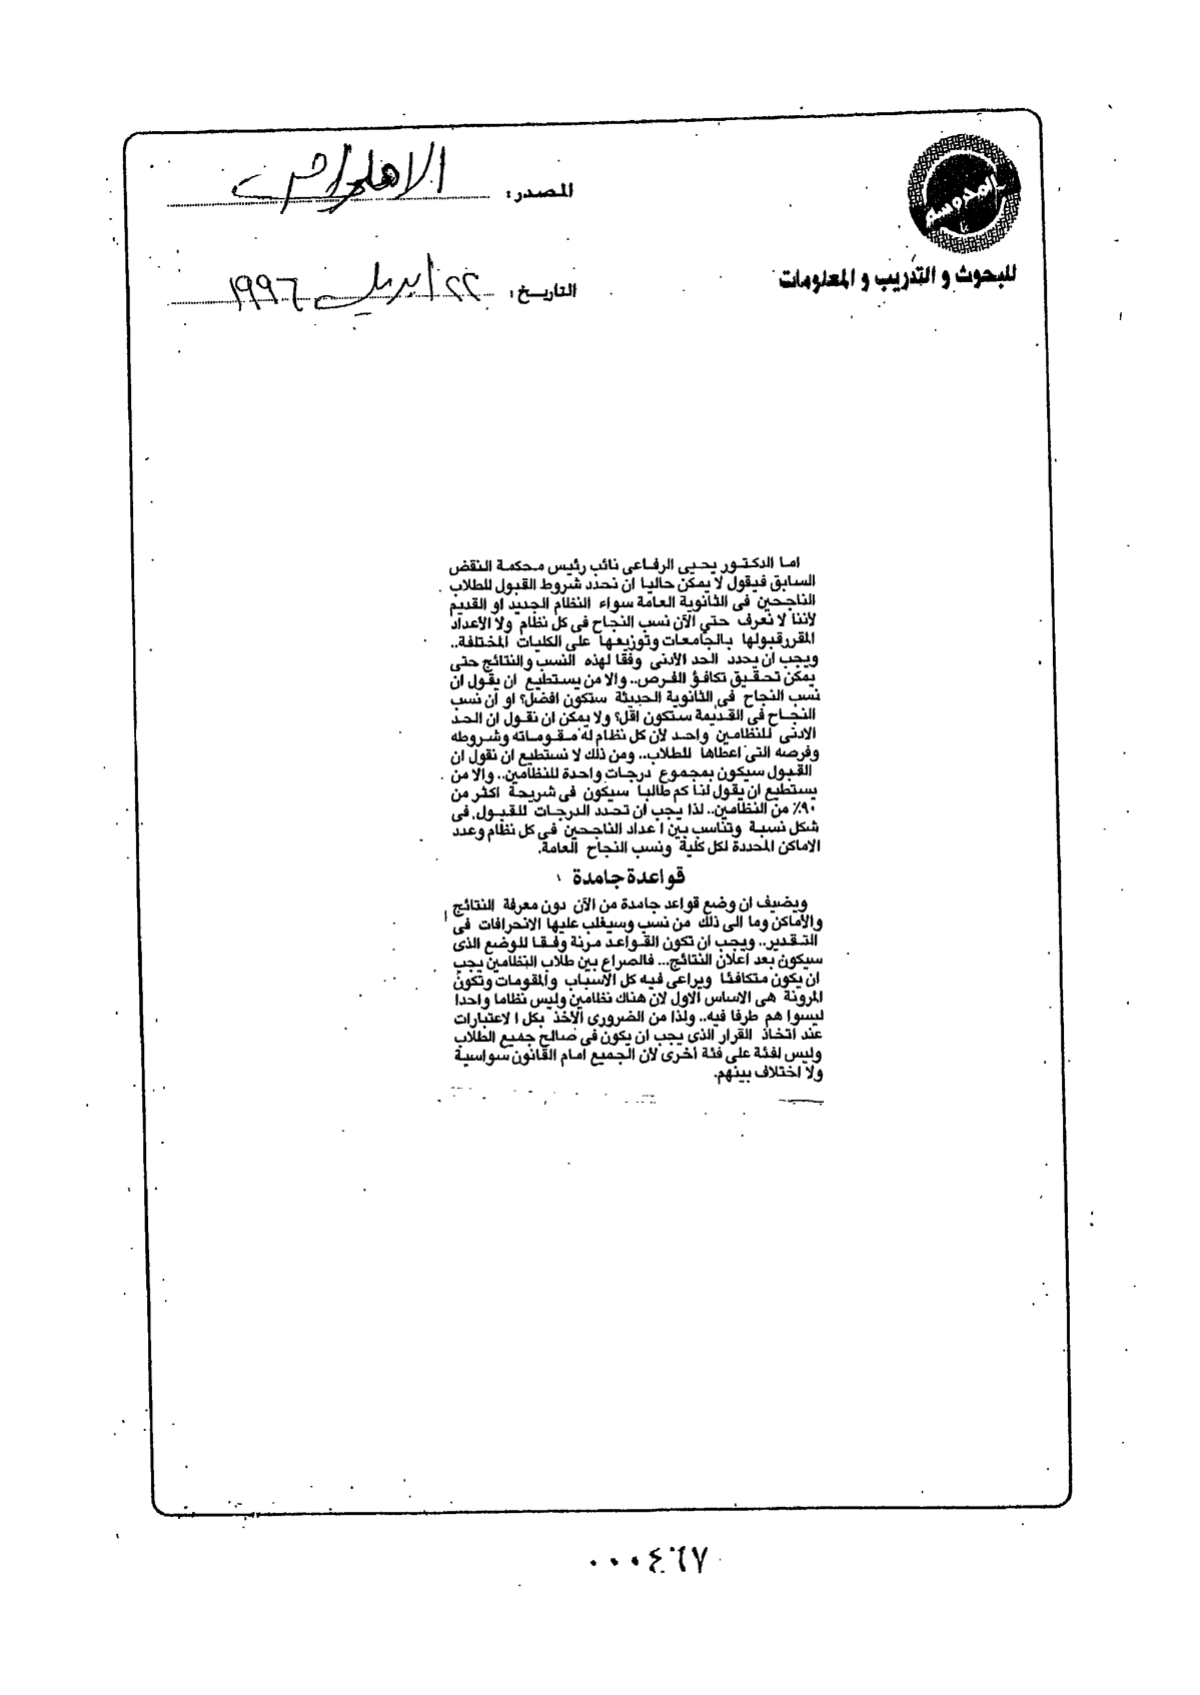 المصدر:
التاريخ: ٢٢ ابريل ١٩٩٦
للبحوث و التدريب و المعلومات
اما الدكتور يحيى الرفاعى نائب رئيس محكمة النقض
السابق فيقول لا يمكن حاليا ان نحدد شروط القبول للطلاب
الناجحين فى الثانوية العامة سواء النظام الجديد او القديم
لأننا لا نعرف حتى الآن نسب النجاح فى كل نظام ولا الأعداد
المقررقبولها بالجامعات وتوزيعها على الكليات المختلفة..
ويجب ان يحدد الحد الأدنى وفقا لهذه النسب والنتائج حتى
يمكن تحقيق تكافؤ الفرص.. والا من يستطيع ان يقول ان
نسب النجاح فى الثانوية الحديثة ستكون افضل؟ او ان نسب
النجاح فى القديمة ستكون اقل؟ ولا يمكن ان نقول ان الحد
الادنى للنظامين واحد لأن كل نظام له مقوماته وشروطه
وفرصه التى اعطاها للطلاب.. ومن ذلك لا نستطيع ان نقول ان
القبول سيكون بمجموع درجات واحدة للنظامين.. والا من
يستطيع ان يقول لنا كم طالبا سيكون فى شريحة اكثر من
٩٠٪ من النظامين.. لذا يجب ان تحدد الدرجات للقبول فى
شكل نسبة وتناسب بين اعداد الناجحين فى كل نظام وعدد
الاماكن المحددة لكل كلية ونسب النجاح العامة.
قواعدة جامدة
ويضيف ان وضع قواعد جامدة من الآن دون معرفة النتائج
والأماكن وما الى ذلك من نسب وسيغلب عليها الانحرافات فى
التقدير.. ويجب ان تكون القواعد مرنة وفقا للوضع الذى
سيكون بعد اعلان النتائج... فالصراع بين طلاب النظامين يجب
ان يكون متكافئا ويراعى فيه كل الاسباب والمقومات وتكون
المرونة هى الاساس الاول لان هناك نظامين وليس نظاما واحدا
ليسوا هم طرفا فيه.. ولذا من الضرورى الأخذ بكل الاعتبارات
عند اتخاذ القرار الذى يجب ان يكون فى صالح جميع الطلاب
وليس لفئة على فئة أخرى لأن الجميع امام القانون سواسية
ولا اختلاف بينهم.
٠٠٠٤٦٧